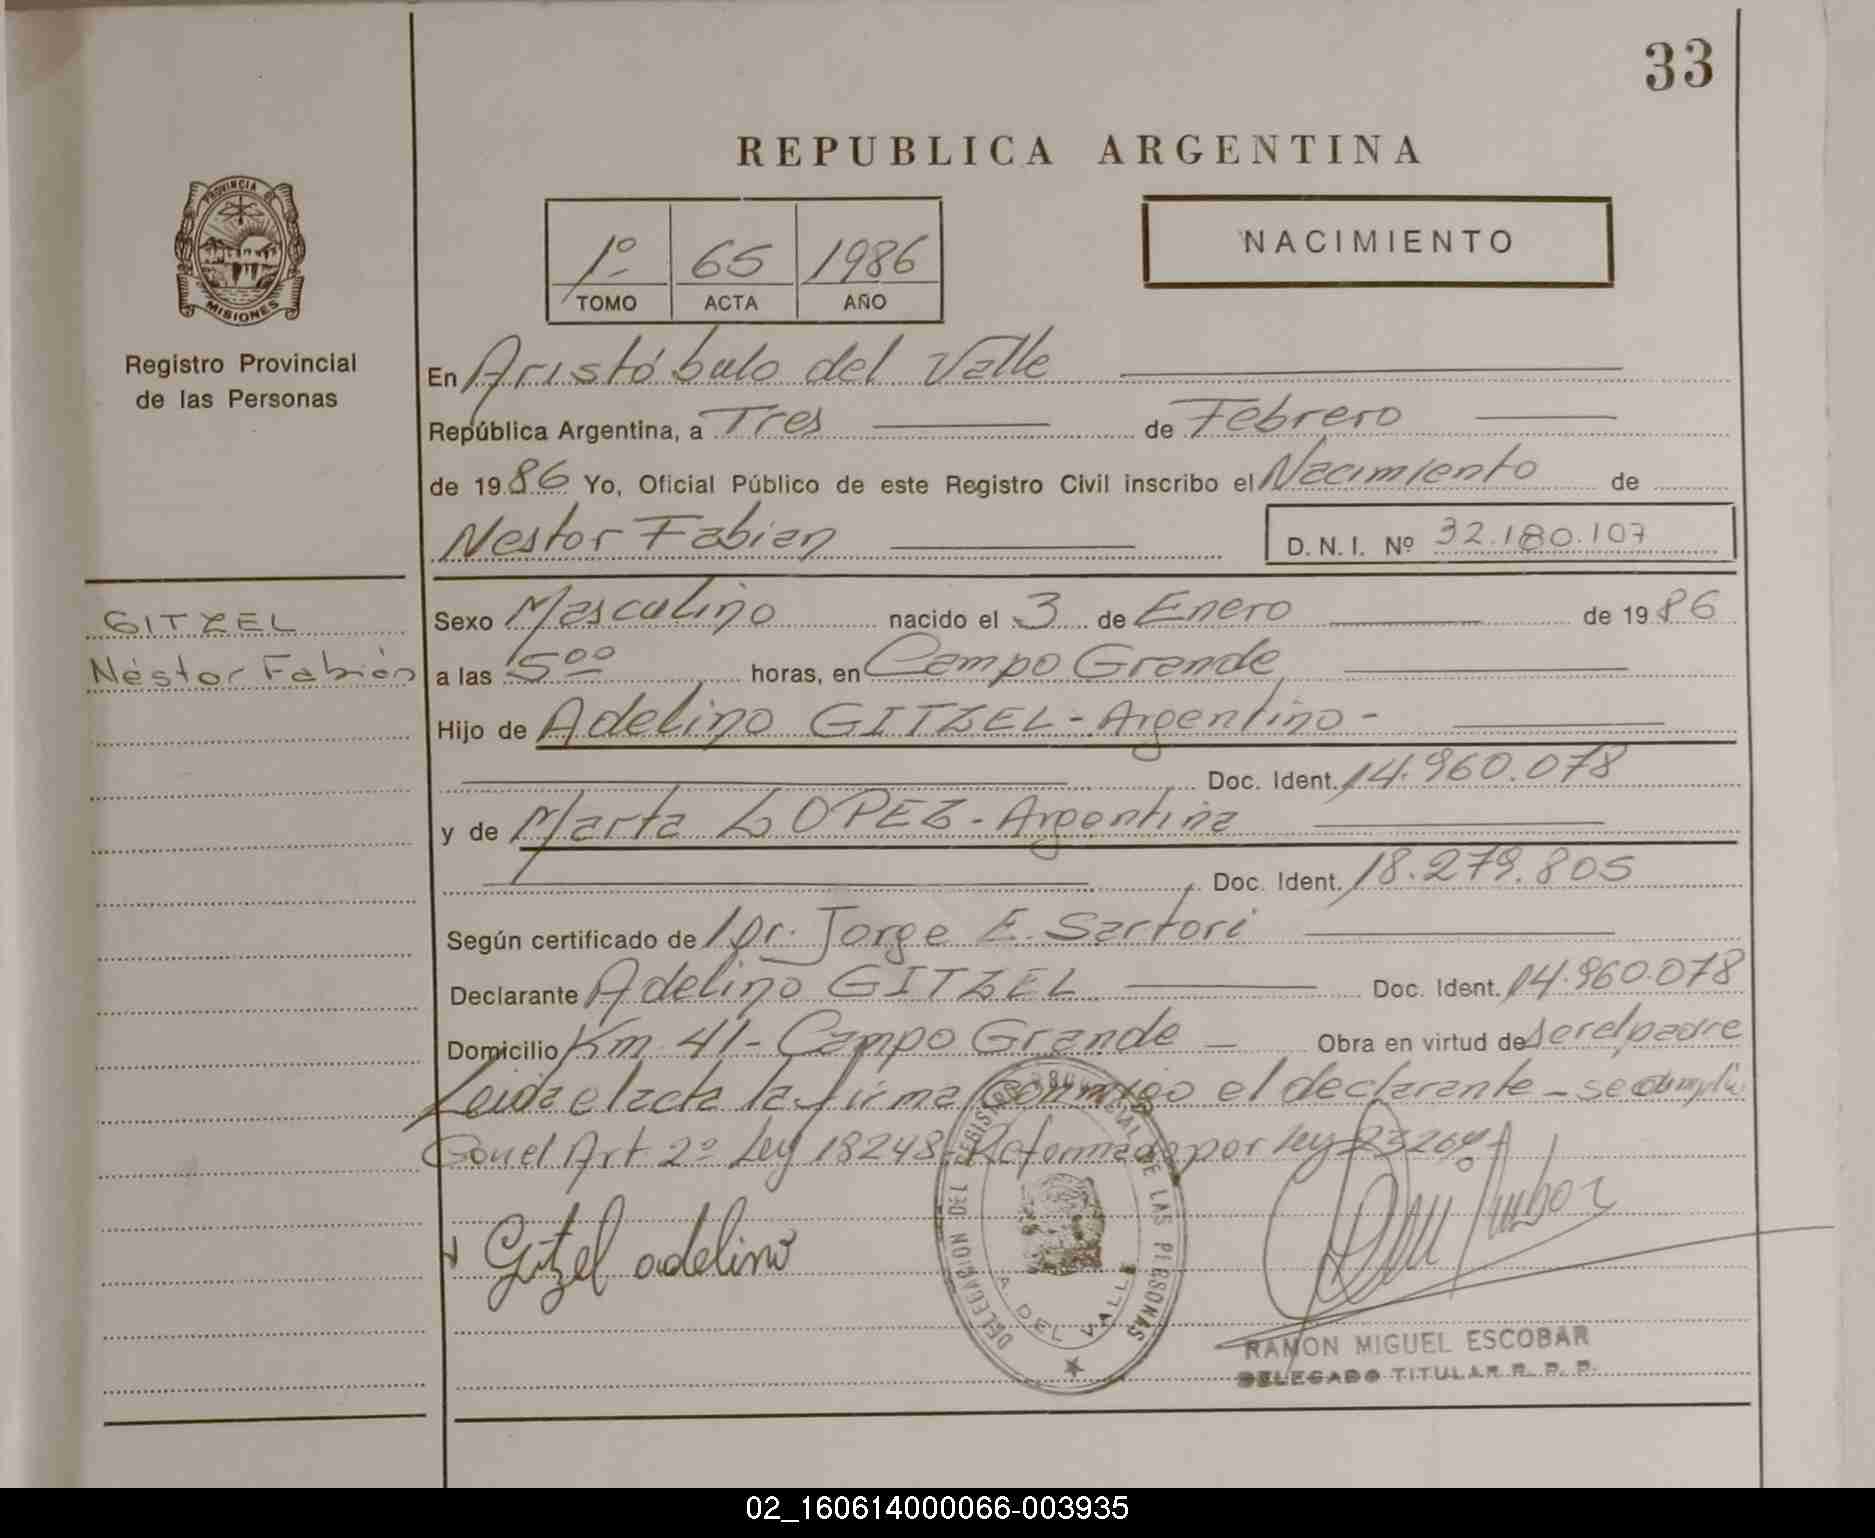 33
REPUBLICA ARGENTINA
PROVINCIA DE
MISIONES
Registro Provincial
de las Personas
1º 65 1986
TOMO ACTA AÑO
NACIMIENTO
En Aristóbulo del Valle
República Argentina, a Tres de Febrero
de 1986 Yo, Oficial Público de este Registro Civil inscribo el Nacimiento de
Nestor Fabian D.N.I. Nº 32.180.107
GITZEL
Néstor Fabián
Sexo Masculino nacido el 3 de Enero de 1986
a las 5⁰⁰ horas, en Campo Grande
Hijo de Adelino GITZEL - Argentino -
Doc. Ident. 14.960.078
y de Marta LOPEZ - Argentina
Doc. Ident. 18.279.805
Según certificado de Dr. Jorge E. Sartori
Declarante Adelino GITZEL Doc. Ident. 14.960.078
Domicilio Km 41 - Campo Grande - Obra en virtud de ser el padre
Leida el acta la firma conmigo el declarante - se cumplió
Con el Art 2º Ley 18248 - Reformado por Ley 23264 -
Gitzel adelino
DELEGACION DEL REGISTRO PROVINCIAL DE LAS PERSONAS
A. DEL VALLE
RAMON MIGUEL ESCOBAR
DELEGADO TITULAR R. P. P.
02_160614000066-003935